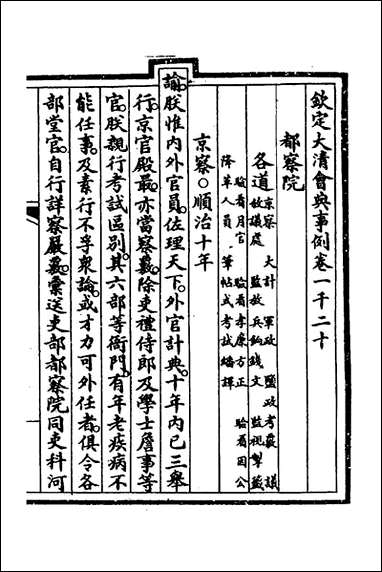 欽定大清會典事例卷一千二十
都察院
各道 京察 大計 軍政 鹽政考覈 議
敘議處 監放兵餉錢文 監視掣籤
驗看月官 驗看孝廉方正 驗看因公
降革人員 筆帖式考試繙譯
京察○順治十年
諭朕惟内外官員。佐理天下。外官計典。十年内已三舉
行。京官殿最。亦當察覈。除吏禮侍郎及學士詹事等
官。朕親行考試區別。其六部等衙門。有年老疾病不
能任事。及素行不孚衆論。或才力可外任者。俱令各
部堂官。自行詳察嚴覈。彙送吏部都察院同吏科河